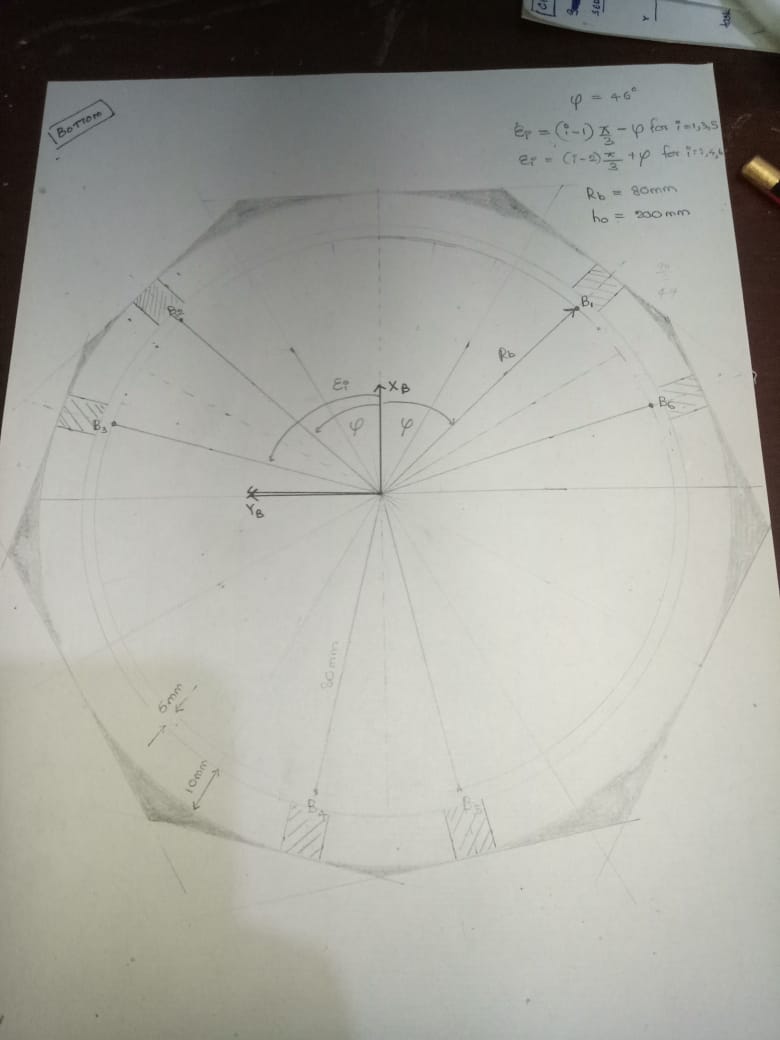 BOTTOM
φ = 46°
εi = (i-1) π/3 - φ for i=1,3,5
εi = (i-2) π/3 + φ for i=2,4,6
Rb = 80mm
ho = 200mm
B1
B2
Rb
εi
XB
B6
B3
φ
φ
YB
80mm
5mm
10mm
B4
B5